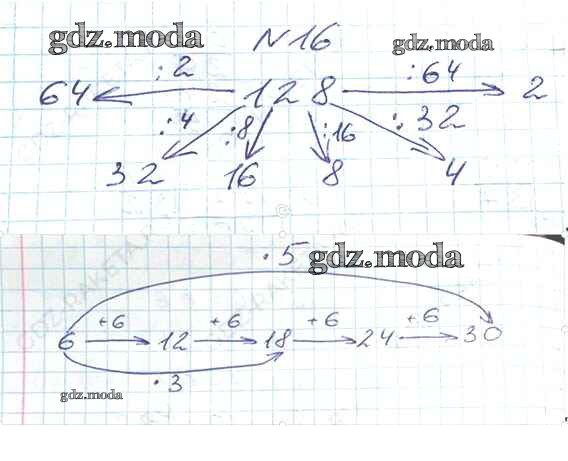 gdz.moda № 16 gdz.moda
:2 :64
64 128 2
:4 :8 :16 :32
32 16 8 4
·5 gdz.moda
+6 +6 +6 +6
6 12 18 24 30
·3
gdz.moda